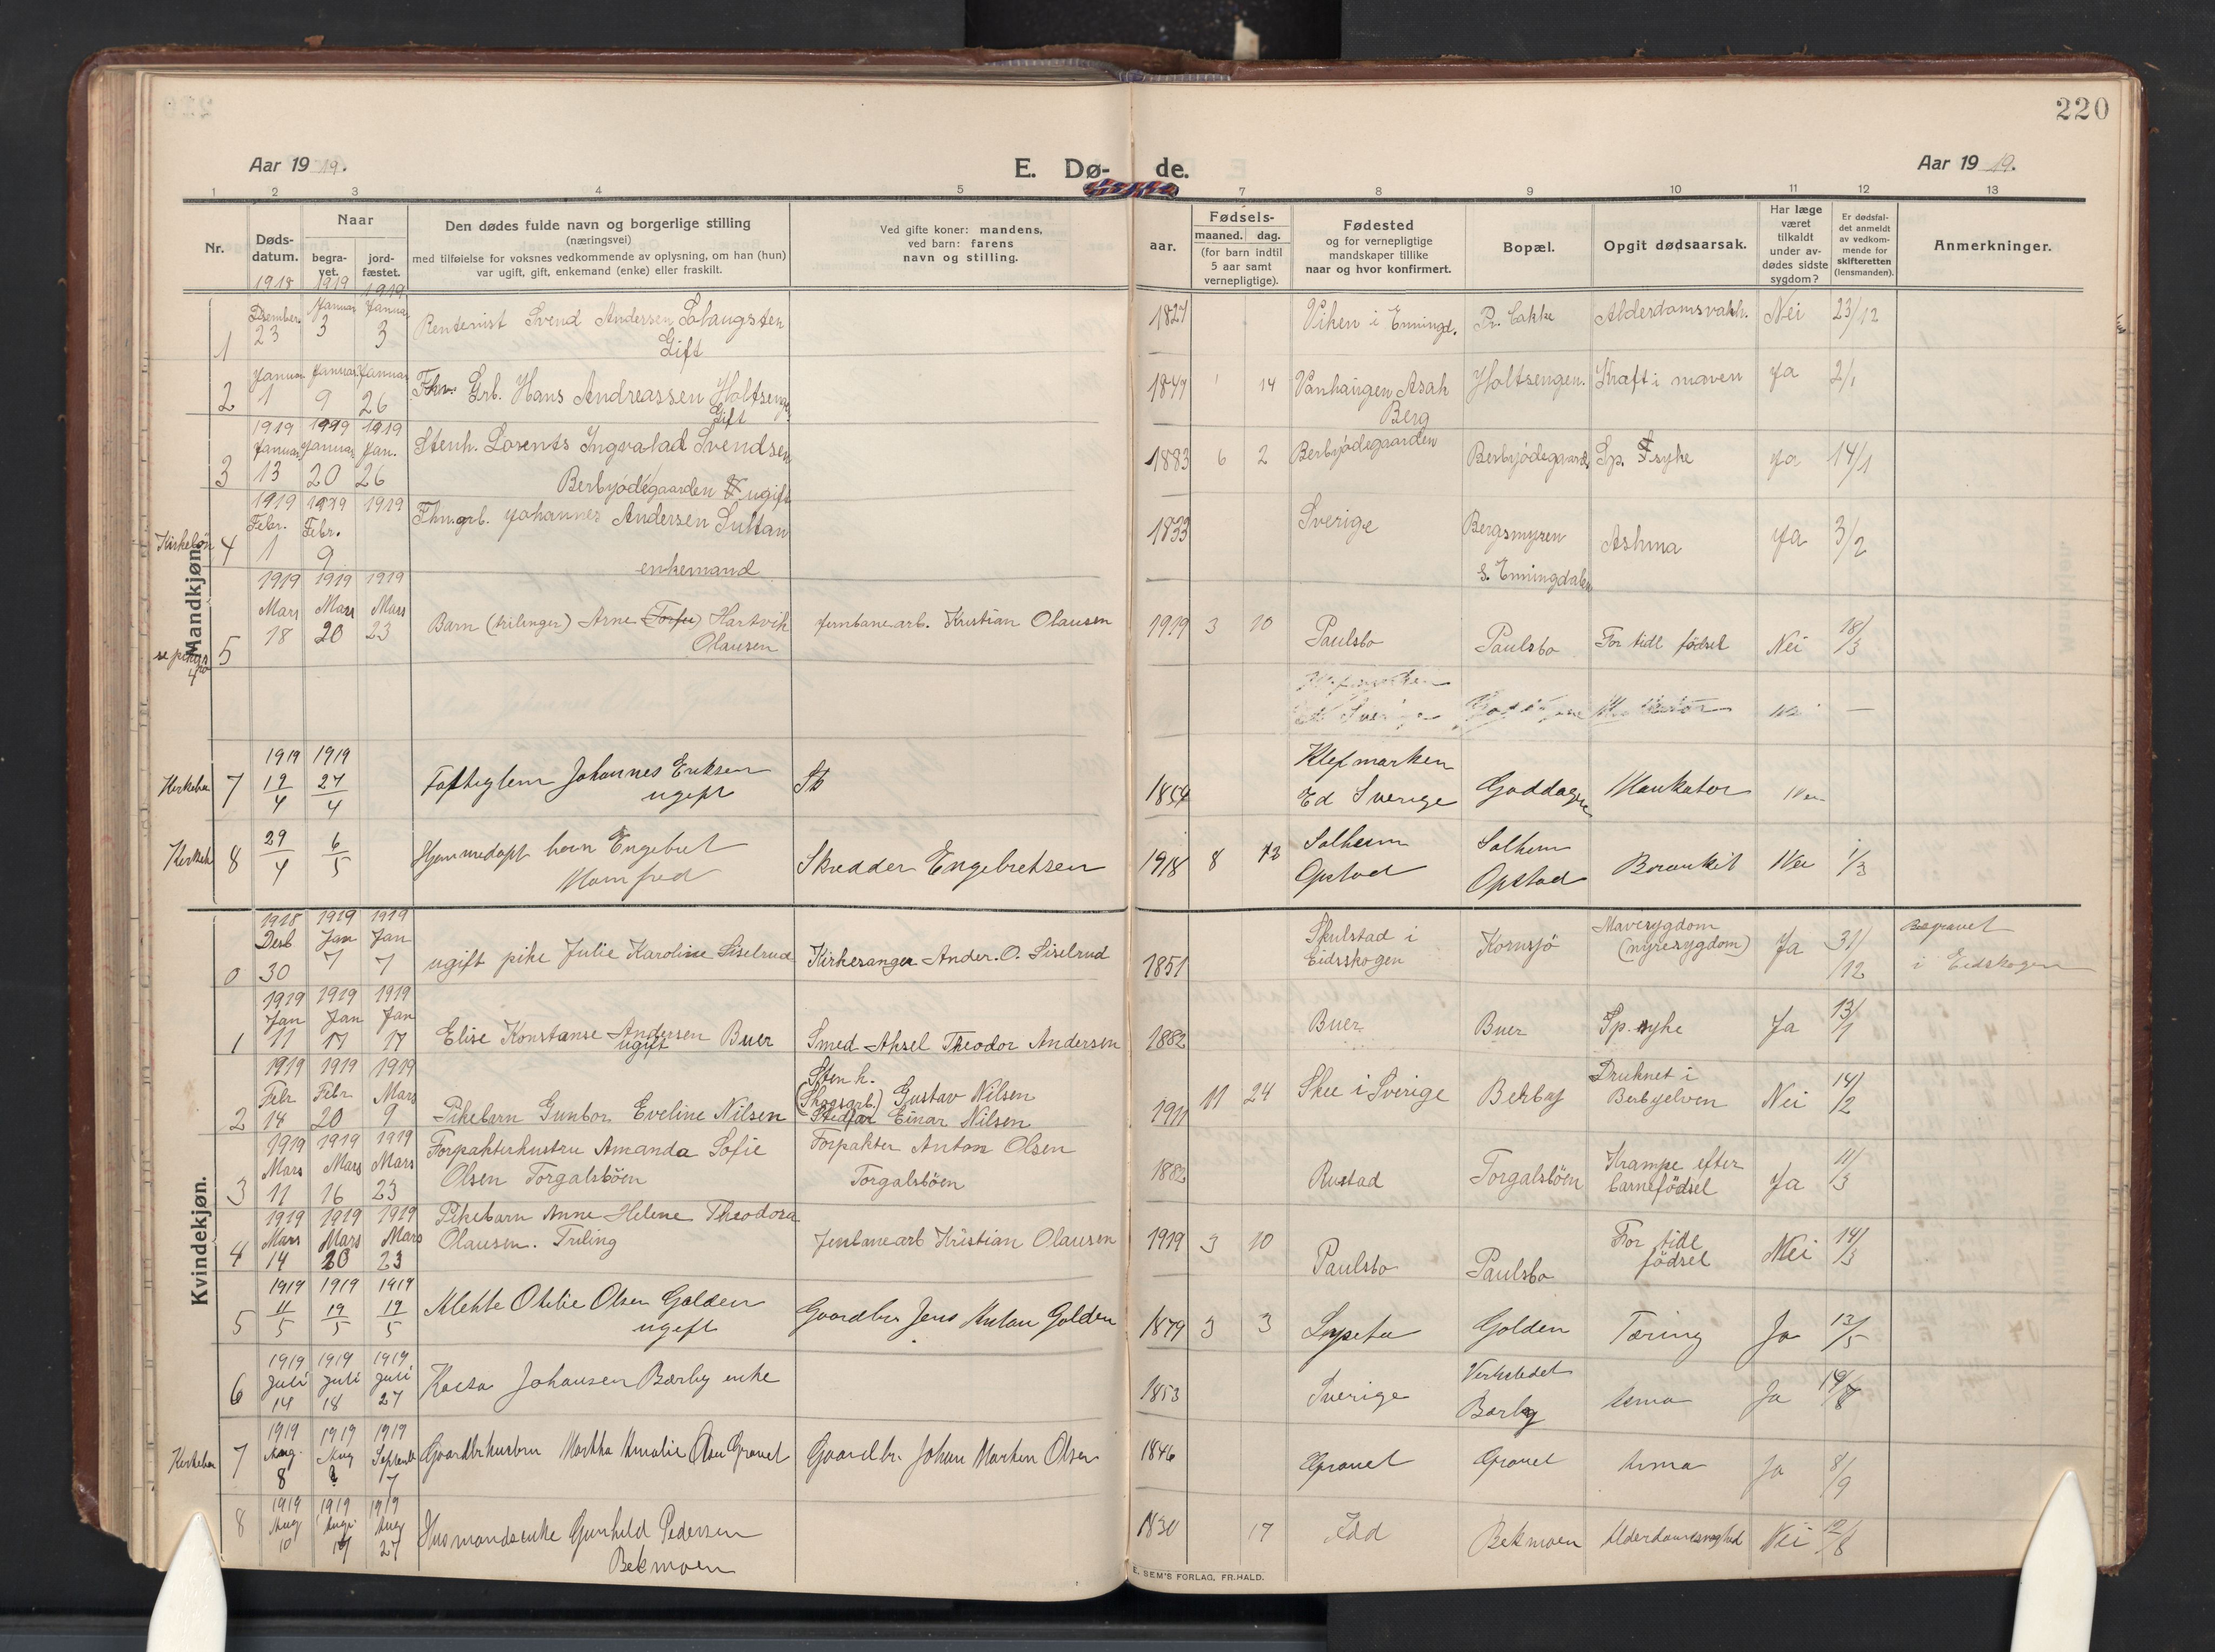 220
Aar 19 19.
E. Dø-
de.
Aar 19 19.
1 2 3 4 5 7 8 9 10 11 12 13
Nr.
Døds-
datum.
Naar
begra-
vet.
jord-
fæstet.
Den dødes fulde navn og borgerlige stilling
(næringsvei)
med tilføielse for voksnes vedkommende av oplysning, om han (hun)
var ugift, gift, enkemand (enke) eller fraskilt.
Ved gifte koner: mandens,
ved barn: farens
navn og stilling.
Fødsels-
aar.
maaned. dag.
(for barn indtil
5 aar samt
vernepligtige).
Fødested
og for vernepligtige
mandskaper tillike
naar og hvor konfirmert.
Bopæl.
Opgit dødsaarsak.
Har læge
været
tilkaldt
under av-
dødes sidste
sygdom?
Er dødsfal-
det anmeldt
av vedkom-
mende for
skifteretten
(lensmanden).
Anmerkninger.
Mandkjøn.
1918 1919 1919
Desember Januar Januar
1 23 3 3
Rentenist Svend Andersen Solaugsten
Gift
1827 Viken i Enningd. Pr. Bakke Alderdomsvakh. Nei 23/12
Januar Januar Januar
2 1 9 26
Fhv. Grb. Hans Andreassen Holtsengen
Gift
1847 1 14 Asak
Berg
Holtsengen. Kræft i maven Ja 2/1
1919 1919 1919
Januar Januar Jan.
3 13 20 26
Stenh. Lorents Ingvalad Svendsen
Berbyødegaarden ugift
1883 6 2 Berbyødegaarden Berbyødegaard. Sp. syke Ja 14/1
1919 1919 1919
Febr. Febr.
4 1 9
Fhv. grb. Johannes Andersen Sultan
enkemand
1833 Sverige Bergsmyren
s. Enningdalen
Ashma Ja 3/2
1919 1919 1919
Mars Mars Mars
5 18 20 23
Barn (trilinger) Arne Hartvik
Olausen
Jernbanearb. Kristian Olausen
1919 3 10 Paulsbo Paulsbo For tidl fødsel Nei 18/3
1919 1919
7 12/4 27/4
Johannes Eriksen
ugift
1854 Klefmarken
Ed Sverige
Goddagen Nei
Kirkeb 8 29/4 6/5
Hjemmedøpt barn Engebret
Manfred
Skredder Engebretsen
1918 8 Solheim
Opstad
Solheim
Opstad
Bronkit Nei 1/3
Kvindekjøn.
1918 1919 1919
Desb Jan Jan
0 30 7 7
ugift pike Julie Karoline Siselrud
Kirkesanger Ander. O. Siselrud
1851 Skulstad i
Eidsskogen
Kornsjø Mavesygdom
(nyresygdom)
Ja 31/12 Begravet
i Eidskogen
1919 1919 1919
Jan Jan Jan
1 11 17 17
Elise Konstanse Andersen Buer
ugift
Smed Aksel Theodor Andersen
1882 Buer Buer Sp. syke Ja 13/1
1919 1919 1919
Febr Febr Mars
2 14 20 9
Pikebarn Gunbor Eveline Nilsen
Stenh.
(Skogsarb.) Gustav Nilsen
Stedfar Einar Nilsen
1911 11 24 Skee i Sverige Berby Druknet i
Berbyelven
Nei 14/2
1919 1919 1919
Mars Mars Mars
3 11 16 23
Forpakterhustru Amanda Sofie
Olsen Torgalsbøen
Forpakter Anton Olsen
Torgalsbøen
1882 Rustad Torgalsbøen Krampe efter
barnefødsel
Ja 11/3
1919 1919 1919
Mars Mars Mars
4 14 20 23
Pikebarn Anne Helene Theodora
Olausen. Triling
Jernbanearb Kristian Olausen
1919 3 10 Paulsbo Paulsbo For tidl
fødsel
Nei 14/3
1919 1919 1919
5 11/5 19/5 19/5
Alette Otelie Olsen Golden
ugift
Gaardbr Jens Anton Golden
1879 3 3 Golden Tæring Ja 13/5
1919 1919 1919
Juli Juli Juli
6 14 18 27
Kaisa Johansen Bærby enke
1853 Sverige Verkstedet
Bærby
Asma Ja
1919 1919 1919
Aug. Aug Septemb
Kirkebøn 7 8 7
Gaardbrhustru Martha Amalie Olsen Opaavel
Gaardbr. Johan Martin Olsen
1846 Asma Ja 8/9
1919 1919 1919
Aug Aug Aug
8 10 27
Husmandsenke Gunhild Pedersen
Bekmoen
1830 17 Idd Bekmoen Alderdomssvaghed Nei
E. SEM'S FORLAG, FR.HALD.